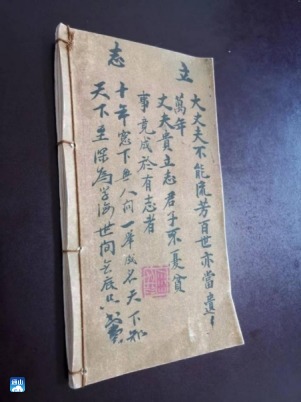 立志
大丈夫不能流芳百世亦當遺
萬年
丈夫貴立志君子不憂貧
事竟成於有志者
十年窓下無人问一舉成名天下知
天下至深為学海世间無底是